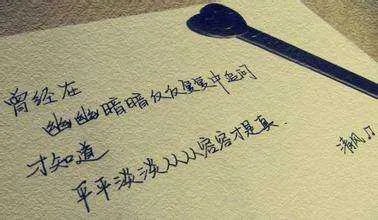 曾经在
幽幽暗暗反反复复中追问
才知道
平平淡淡从从容容才是真.
清风